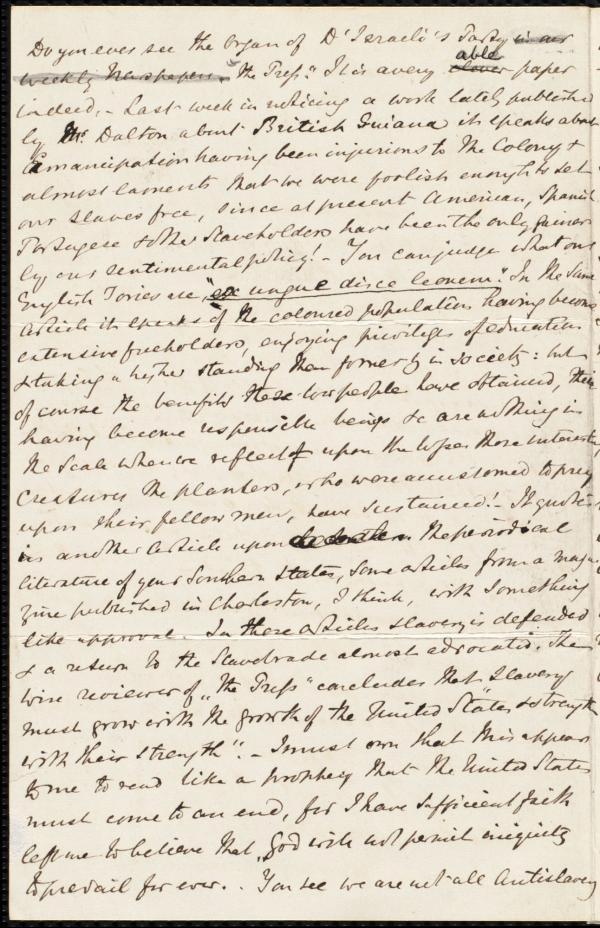 Do you ever see the organ of D'Israeli's Party in our
weekly Newspapers. "The Press." It is a very clever able paper
indeed. - Last week in noticing a work lately published
by Mr. Dalton about British Guiana it speaks about
Emancipation having been injurious to the Colony &
almost laments that we were foolish enough to set
our slaves free, since at present American, Spanish
Portugese & other slaveholders have been the only gainers
by our sentimental policy! - You can judge what our
English Tories are, "ex ungue disce leonem". In the same
article it speaks of the coloured population having become
extensive freeholders, enjoying privileges of education
& taking a higher standing than formerly in society: but
of course the benefits these low people have obtained, their
having become responsible beings &c are nothing in
the scale when we reflect upon the losses those interesting
creatures the planters, who were accustomed to prey
upon their fellow men, have sustained! - It quotes
in another article upon the periodical
literature of your Southern States, some articles from a maga-
zine published in Charleston, I think, with something
like approval. In these articles slavery is defended
& a return to the Slavetrade almost advocated. The
wise reviewer of "The Press" concludes that slavery
must grow with the growth of the United States & strengthen
with their strength". - I must own that this appears
to me to read like a prophecy that the United States
must come to an end, for I have sufficient faith
left me to believe that God will not permit iniquity
to prevail for ever. - You see we are not all Antislavery